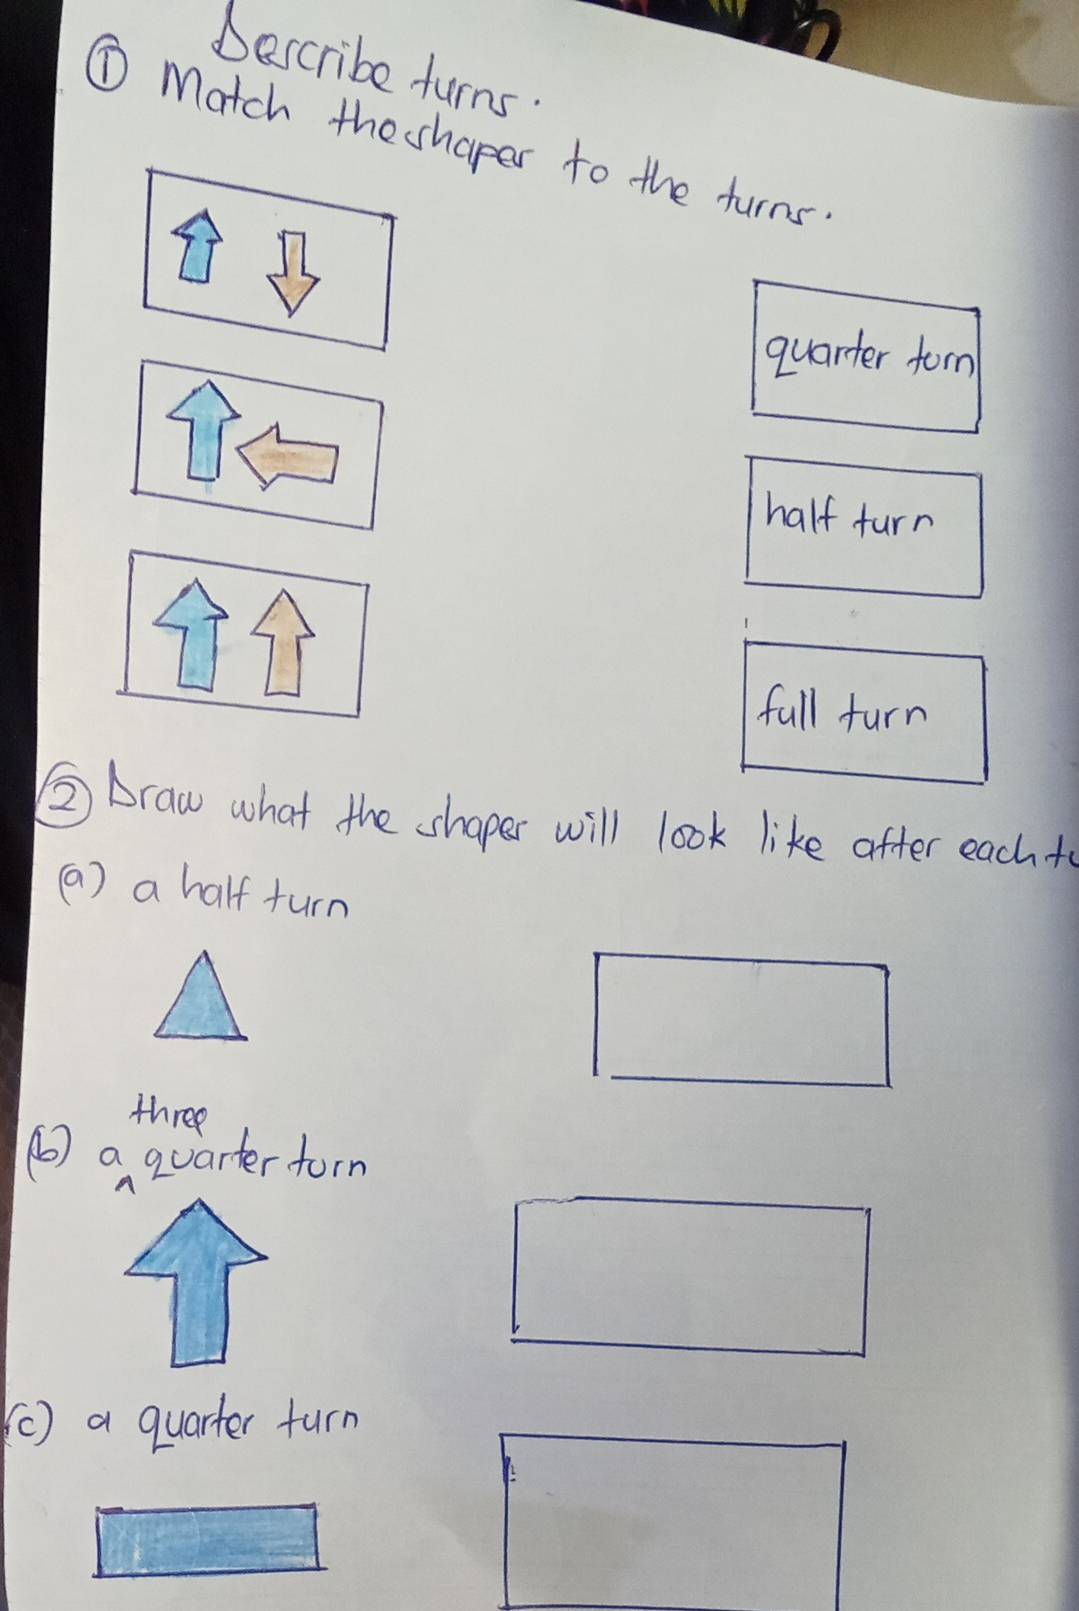 Describe turns.
① Match the shapes to the turns.
quarter turn
half turn
full turn
② Draw what the shapes will look like after each tu
(a) a half turn
three
(b) a ^ quarter turn
(c) a quarter turn